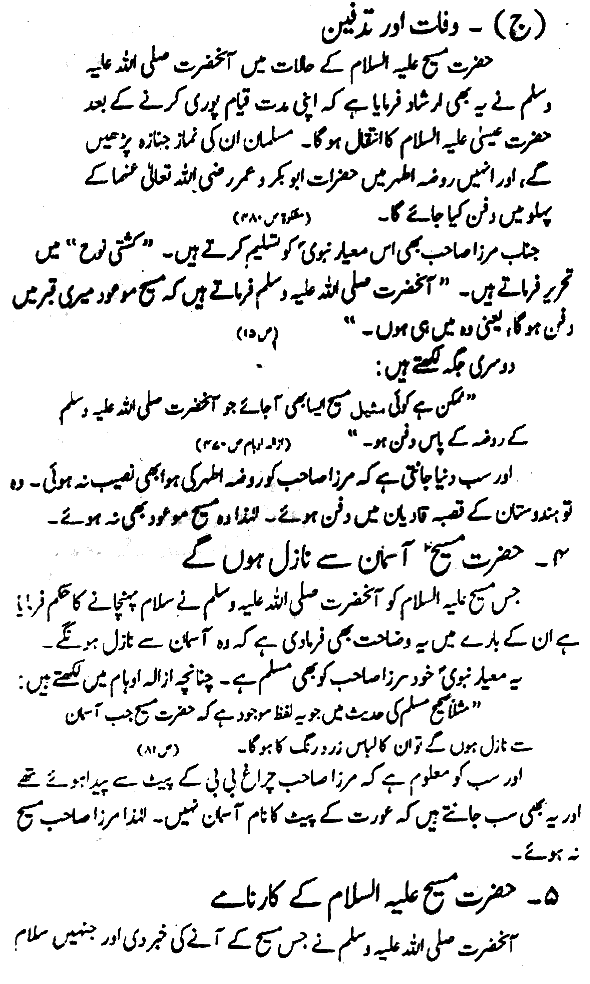 (ج) - وفات اور تدفین
حضرت مسیح علیہ السلام کے حالات میں آنحضرت صلی اللہ علیہ
وسلم نے یہ بھی ارشاد فرمایا ہے کہ اپنی مدت قیام پوری کرنے کے بعد
حضرت عیسیٰ علیہ السلام کا انتقال ہوگا۔ مسلمان ان کی نماز جنازہ پڑھیں
گے، اور انہیں روضہ اطہر میں حضرات ابوبکر و عمر رضی اللہ تعالیٰ عنہما کے
پہلو میں دفن کیا جائے گا۔ (مشکوٰۃ ص ۴۸۰)
جناب مرزا صاحب بھی اس معیار نبوی کو تسلیم کرتے ہیں۔ "کشتی نوح" میں
تحریر فرماتے ہیں۔ "آنحضرت صلی اللہ علیہ وسلم فرماتے ہیں کہ مسیح موعود میری قبر میں
دفن ہوگا، یعنی وہ میں ہی ہوں۔" (ص ۱۵)
دوسری جگہ لکھتے ہیں:
"ممکن ہے کوئی مثیل مسیح ایسا بھی آجائے جو آنحضرت صلی اللہ علیہ وسلم
کے روضہ کے پاس دفن ہو۔" (ازالہ اوہام ص ۴۷۰)
اور سب دنیا جانتی ہے کہ مرزا صاحب کو روضہ اطہر کی ہوا بھی نصیب نہ ہوئی۔ وہ
تو ہندوستان کے قصبہ قادیان میں دفن ہوئے۔ لہٰذا وہ مسیح موعود بھی نہ ہوئے۔
۴۔ حضرت مسیحؑ آسمان سے نازل ہوں گے
جس مسیح علیہ السلام کو آنحضرت صلی اللہ علیہ وسلم نے سلام پہنچانے کا حکم فرمایا
ہے ان کے بارے میں یہ وضاحت بھی فرمادی ہے کہ وہ آسمان سے نازل ہونگے۔
یہ معیار نبوی خود مرزا صاحب کو بھی مسلم ہے۔ چنانچہ ازالہ اوہام میں لکھتے ہیں:
"مثلاً صحیح مسلم کی حدیث میں جو یہ لفظ موجود ہے کہ حضرت مسیح جب آسمان
سے نازل ہوں گے تو ان کا لباس زرد رنگ کا ہوگا۔ (ص ۸۱)
اور سب کو معلوم ہے کہ مرزا صاحب چراغ بی بی کے پیٹ سے پیدا ہوئے تھے
اور یہ بھی سب جانتے ہیں کہ عورت کے پیٹ کا نام آسمان نہیں۔ لہٰذا مرزا صاحب مسیح
نہ ہوئے۔
۵۔ حضرت مسیح علیہ السلام کے کارنامے
آنحضرت صلی اللہ علیہ وسلم نے جس مسیح کے آنے کی خبر دی اور جنہیں سلام